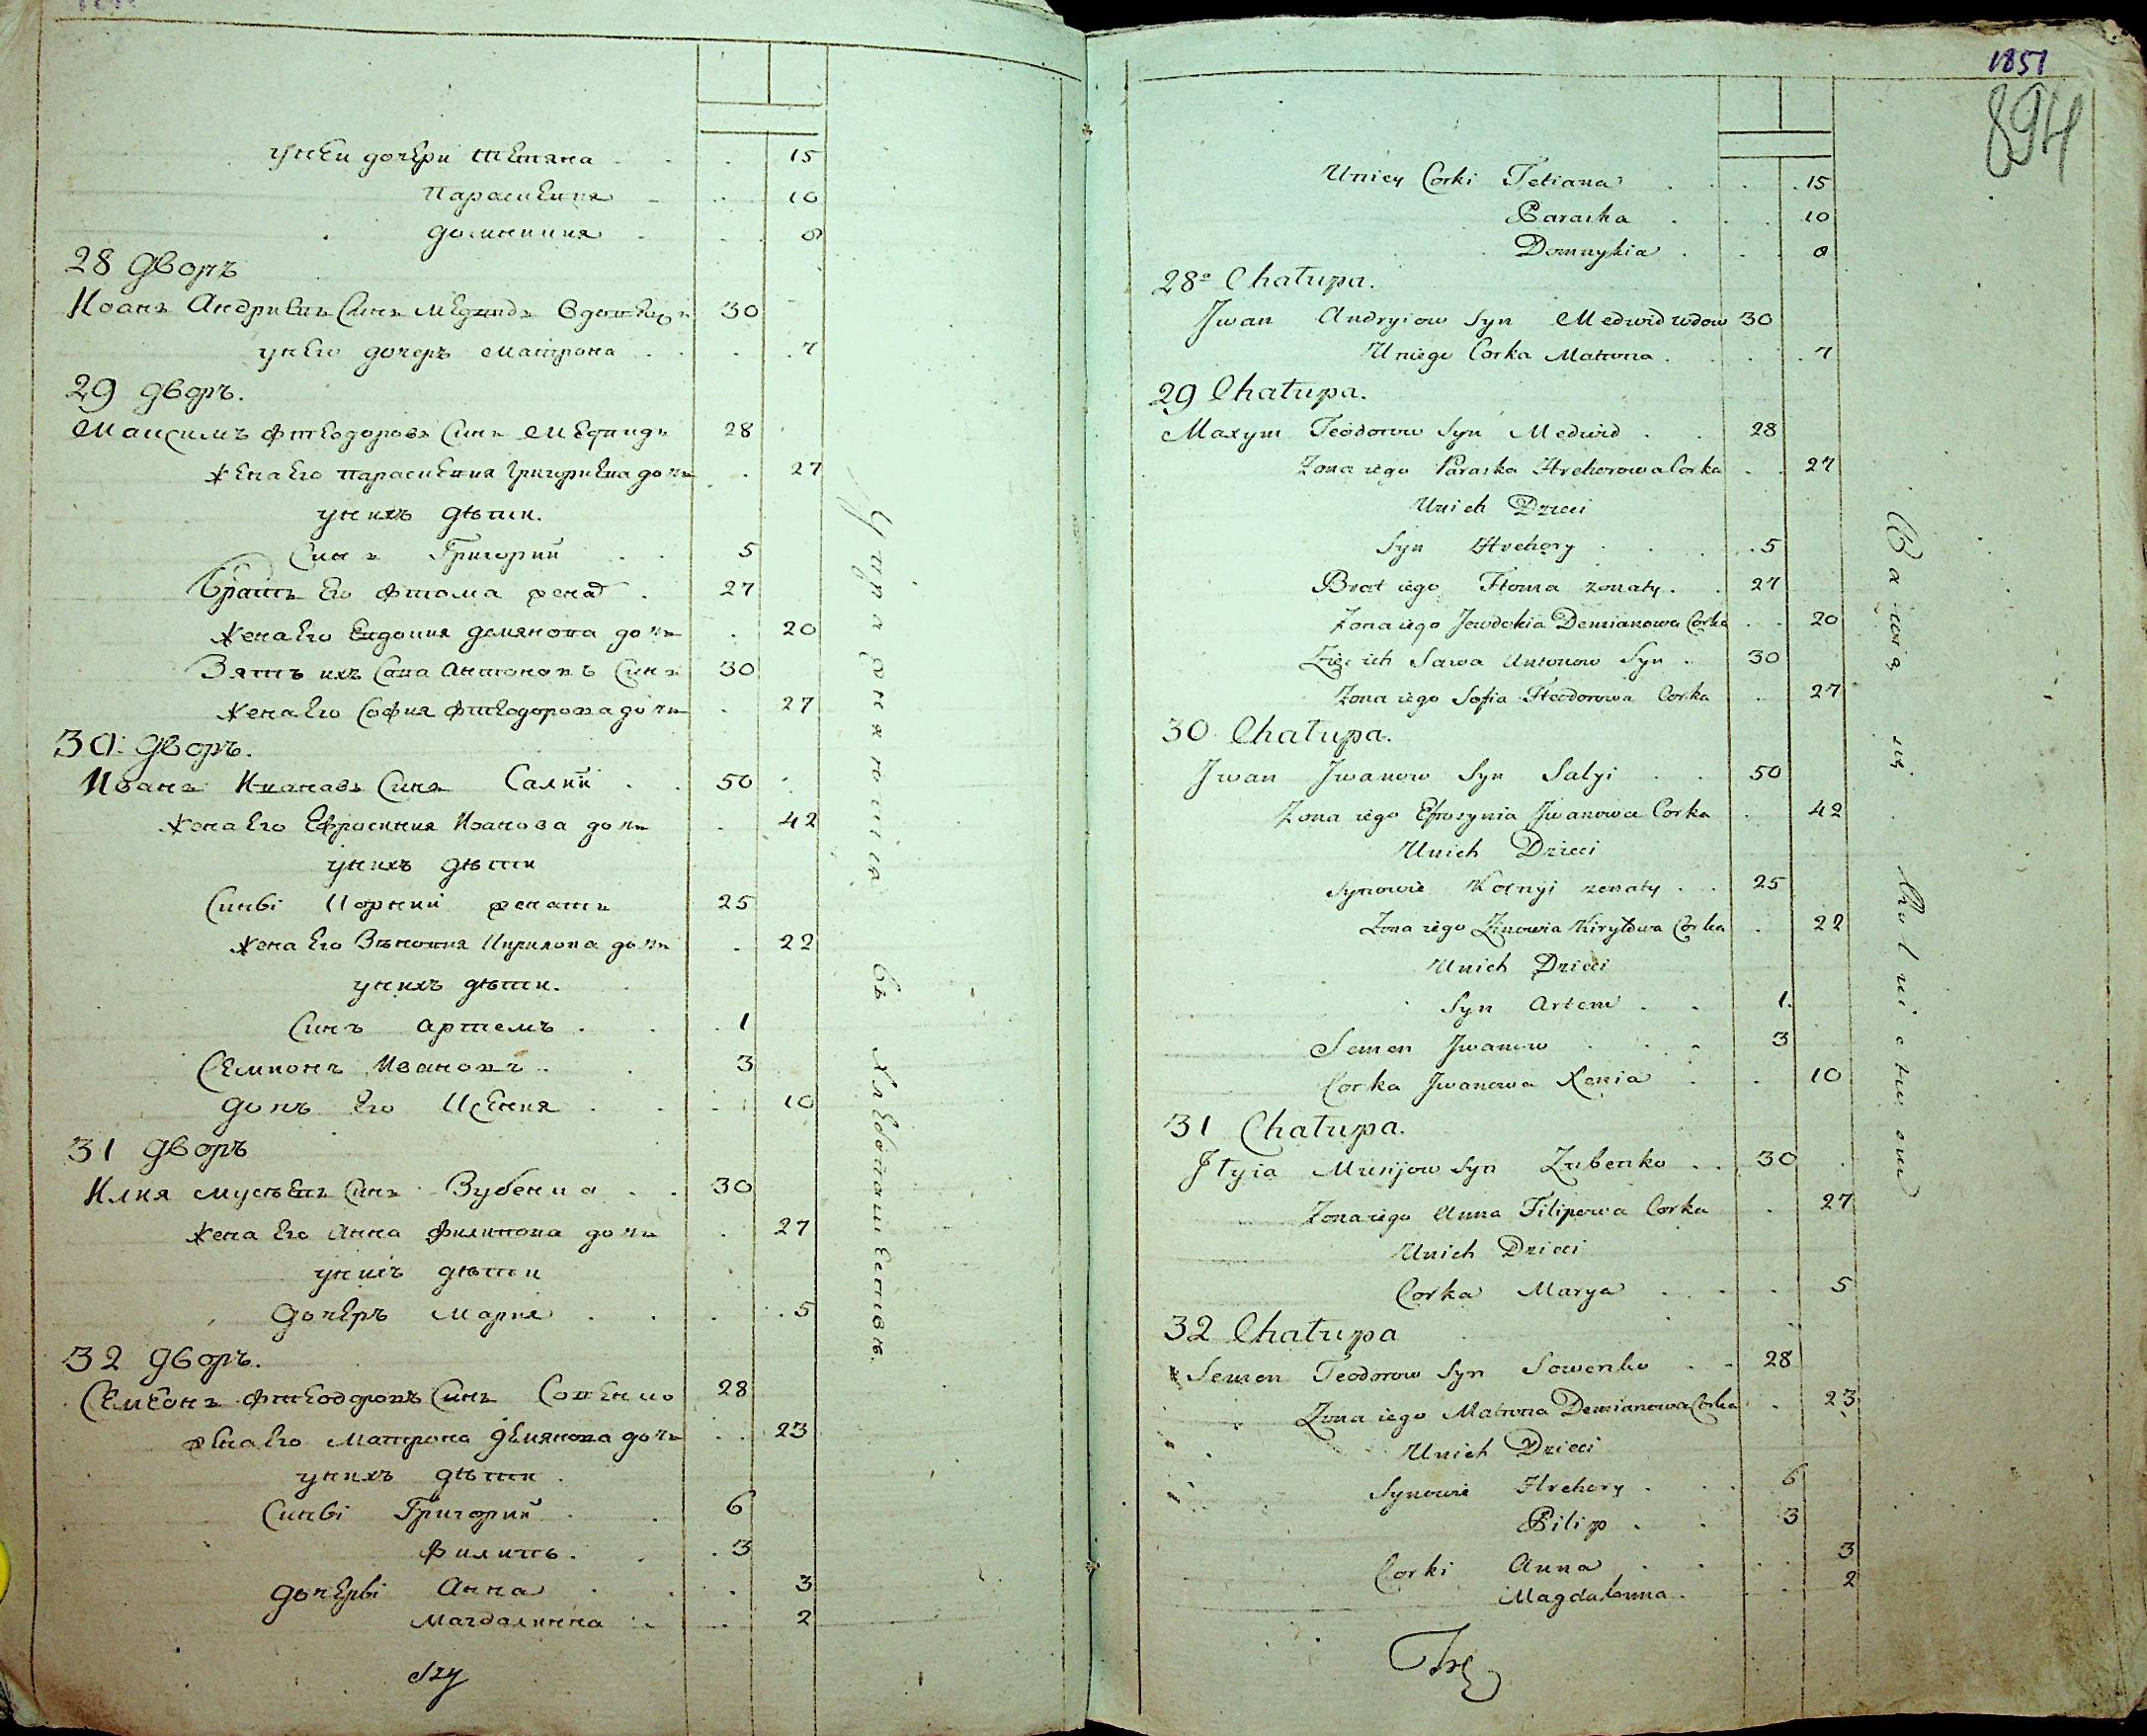 унеи дочери Тетяна 15
Параскевия 10
Домникия 8
28 дворъ
Иоанъ Андриевъ Синъ Медвидь Вдовецъ 30
унего дочеръ Матрона 7
29 дворъ.
Маисимъ Фтеодоровъ Синъ Медвидь 28
жена Его Параскевия Григориева дочь 27
унихъ дѣти.
Синъ Григорий 5
Братъ Его Фтома женат 27
жена Его Евдокия Демянова дочь 20
Зятъ ихъ Сава Антоновъ Синъ 30
жена Его София Фтеодорова дочь 27
30 дворъ.
Иванъ Ивановъ Синъ Салий 50
жена Его Ефросиния Иванова дочь 42
унихъ дѣти
Синві Корний женатъ 25
жена Его Зѣновия Кирилова дочь 22
унихъ дѣти.
Синъ Артемъ 1
Семионъ Ивановъ 3
дочь Его Ксения 10
31 дворъ
Илия Мусѣевъ Синъ Зубенко 30
жена Его Анна Филипова дочь 27
унихъ дѣти
дочеръ Мария 5
32 дворъ.
Семеонъ Фтеодоровъ Синъ Совенко 28
жена Его Матрона Демянова дочь 23
унихъ дѣти
Синві Григорий 6
Филипъ 3
дочерві Анна 3
Магдалинна 2
Упражняюшися въ хлебопашествѣ.
1851
894
Uniey Corki Tetiana 15
Paraska 10
Domnykia 8
28 Chałupa.
Jwan Andryiow Syn Medwid wdow 30
Uniego Corka Matrona 7
29 Chałupa.
Maxym Teodorow Syn Medwid 28
Zona iego Paraska Hrehorowa Corka 27
Unich Dzieci
Syn Hrehory 5
Brat iego Homa zonaty 27
Zona iego Jewdokia Demianowa Corka 20
Zięc ich Sawa Antonow Syn 30
Zona iego Sofia Fteodorowa Corka 27
30 Chałupa.
Jwan Jwanow Syn Salyi 50
Zona iego Efrosynia Jwanowa Corka 42
Unich Dzieci
Synowie Kornyi zonaty 25
Zona iego Zinowia Kiryłowa Corka 22
Unich Dzieci
Syn Artem 1.
Semen Jwanow 3
Corka Jwanowa Xenia 10
31 Chałupa.
Jłyia Musijow Syn Zubenko 30
Zona iego Anna Filipowa Corka 27
Unich Dzieci
Corka Marya 5
32 Chałupa
Semen Teodorow Syn Sowenko 28
Zona iego Matrona Demianowa Corka 23
Unich Dzieci
Synowie Hrehory 6
Pilip 3
Corki Anna 3
Magdalenna 2
Bawią się Rolnictwem